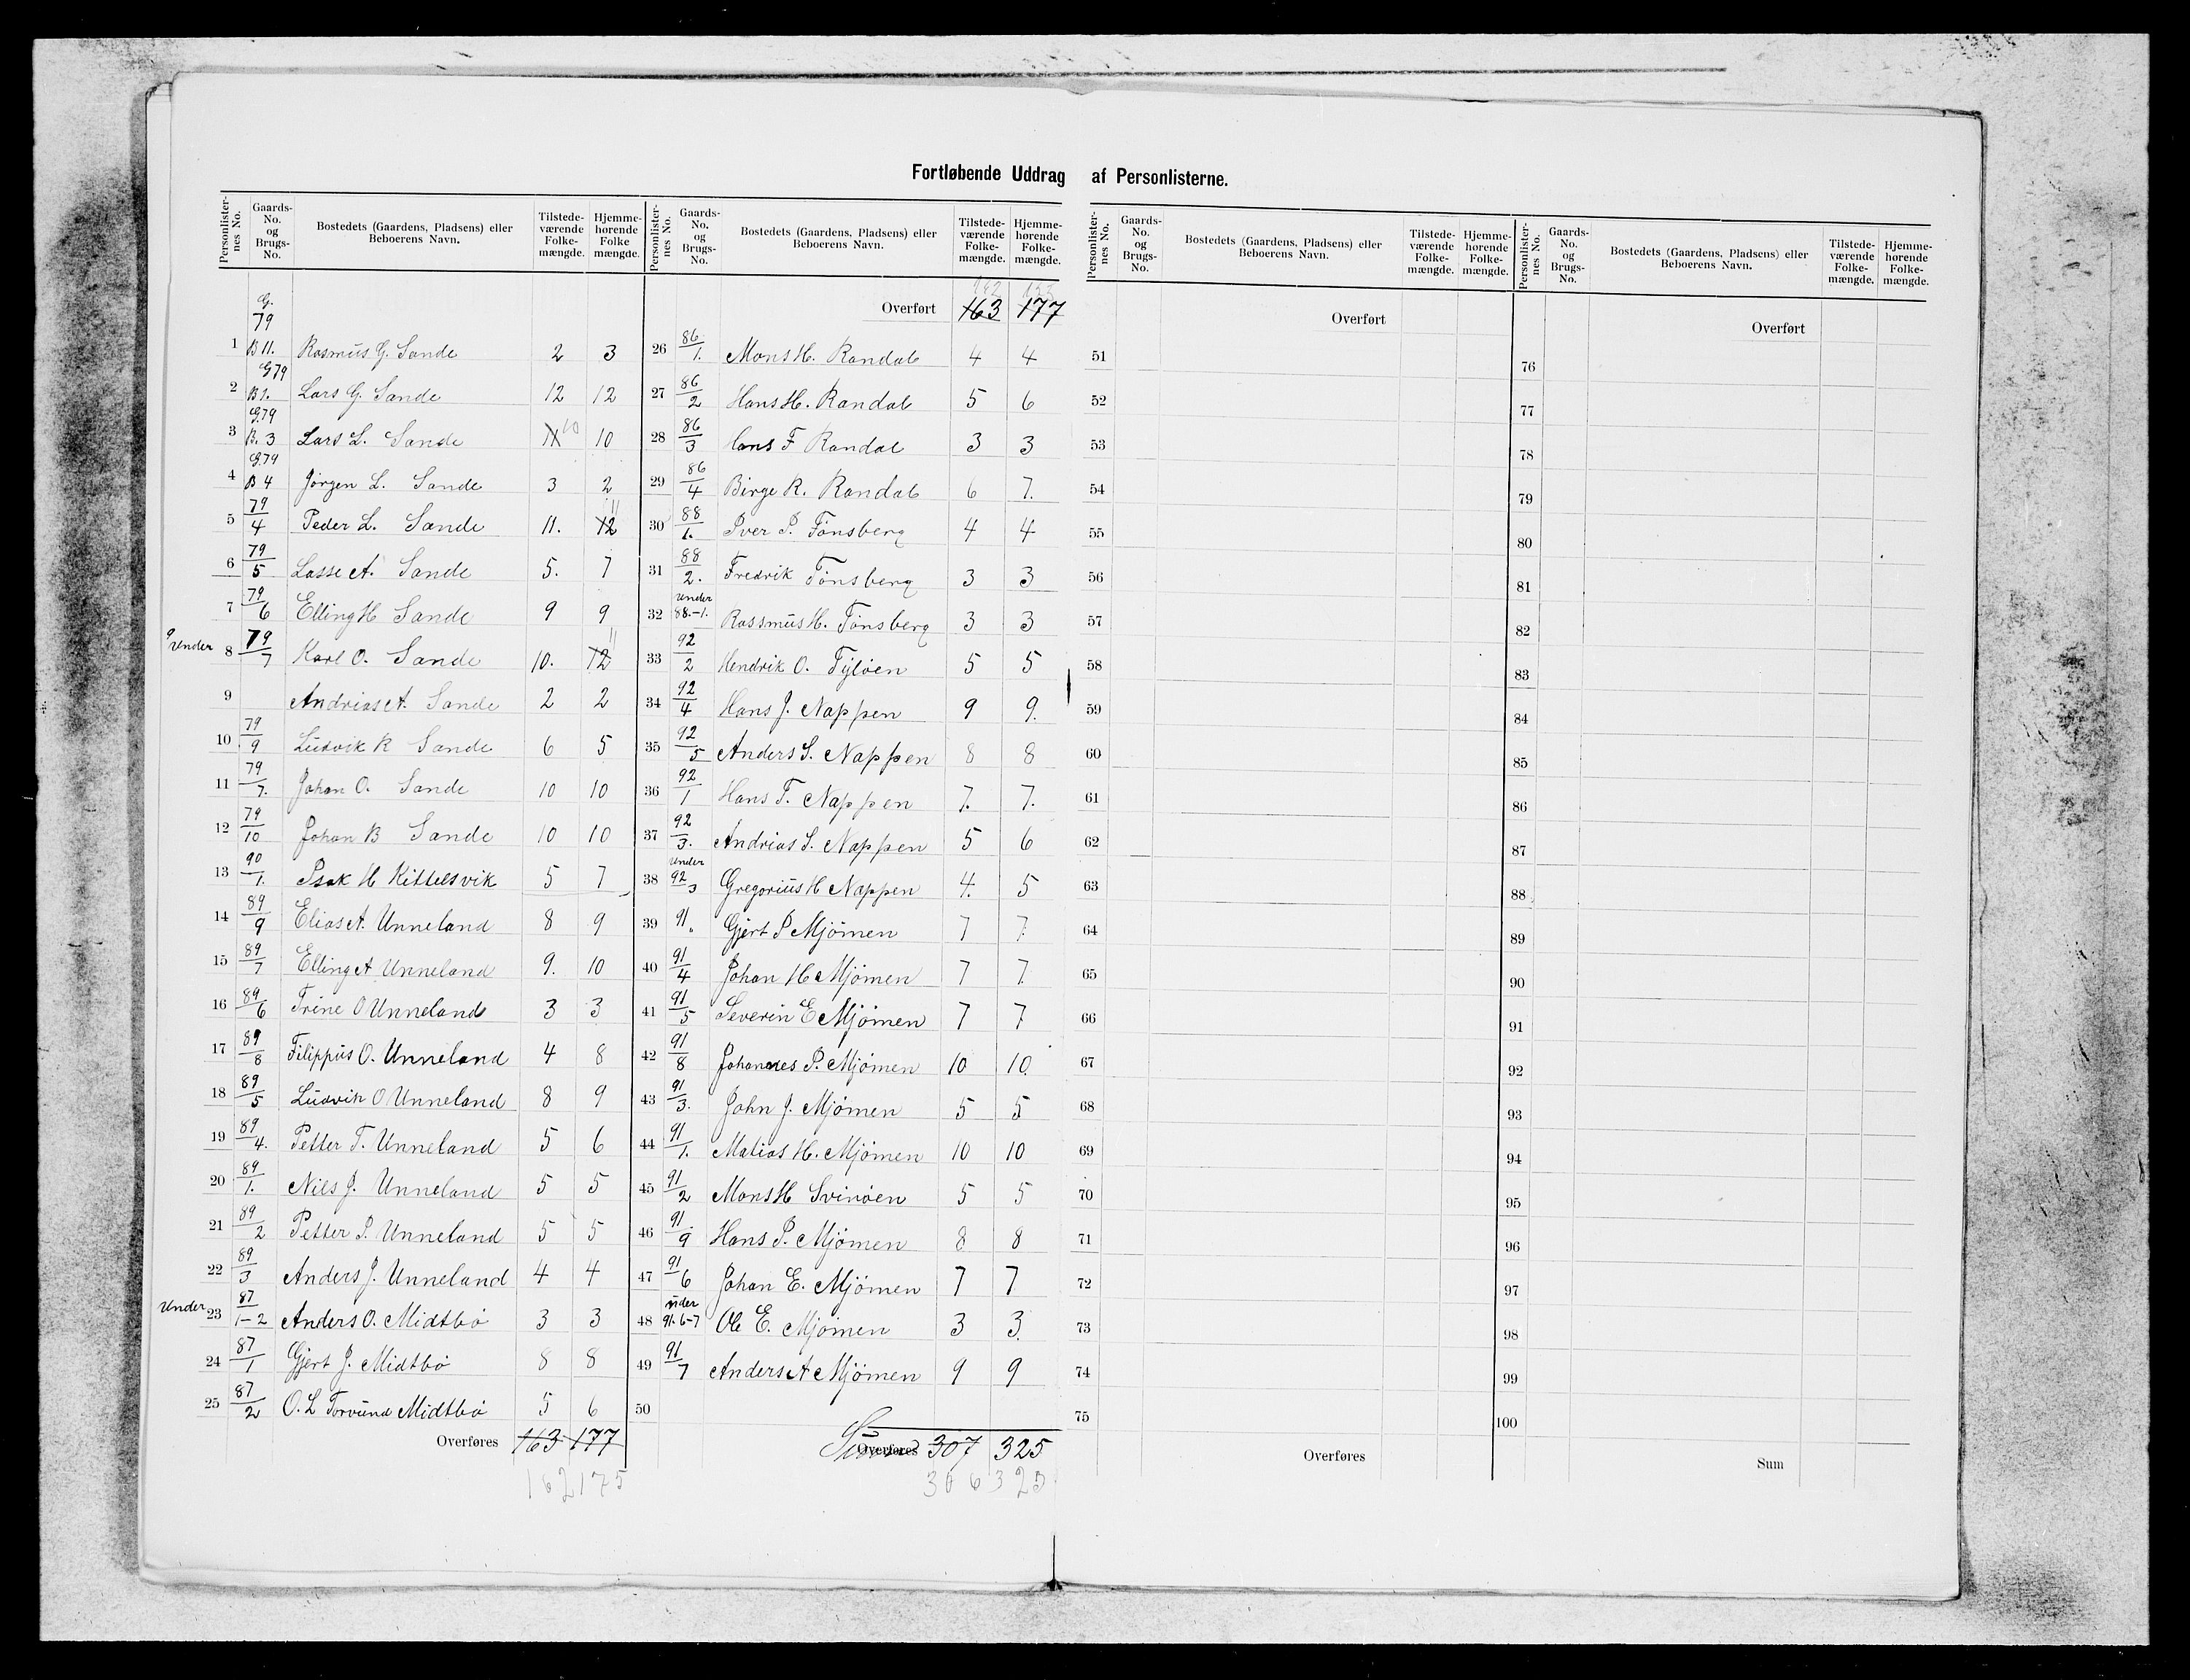 Fortløbende Uddrag af Personlisterne.
Personlisternes No. Gaards-No. og Brugs-No. Bostedets (Gaardens, Pladsens) eller Beboerens Navn. Tilstedeværende Folkemængde. Hjemmehørende Folkemængde.
G. 79
1 B 11. Rasmus G. Sande 2 3
2 G 79 B 1. Lars G. Sande 12 12
3 G. 79 B. 3 Lars L. Sande 11 10 10
4 G. 79 B 4 Jørgen L. Sande 3 2
5 79/4 Peder L. Sande 11. 12 11
6 79/5 Lasse A. Sande 5. 7
7 79/6 Elling H Sande 9 9
under 8 79/7 Karl O. Sande 10. 12 11
9 Andrias A. Sande 2 2
10 79/9 Ludvik R Sande 6 5
11 79/7. Johan O. Sande 10 10
12 79/10 Johan B Sande 10 10
13 90/1. Isak H Kittelsvik 5 7
14 89/9 Elias A. Unneland 8 9
15 89/7 Elling A Unneland 9. 10
16 89/6 Trine O Unneland 3 3
17 89/8 Filippus O. Unneland 4 8
18 89/5 Ludvik O Unneland 8 9
19 89/4. Petter T. Unneland 5 6
20 89/1. Nils J. Unneland 5 5
21 89/2 Petter P. Unneland 5 5
22 89/3 Anders J. Unneland 4 4
Under 23 87/1-2 Anders O. Midtbö 3 3
24 87/1 Gjert J. Midtbö 8 8
25 87/2 O. L Torvund Midtbö 5 6
Overføres 163 177
162 175
Personlisternes No. Gaards-No. og Brugs-No. Bostedets (Gaardens, Pladsens) eller Beboerens Navn. Tilstedeværende Folkemængde. Hjemmehørende Folkemængde.
Overført 163 177
26 86/1. Mons H. Randal 4 4
27 86/2 Hans H. Randal 5 6
28 86/3 Hans F Randal 3 3
29 86/4 Birge R. Randal 6 7.
30 88/1. Iver P. Tönsberg 4 4
31 88/2. Fredrik Tönsberg 3 3
32 under 88.-1. Rassmus H. Tönsberg 3 3
33 92/2 Hendrik O. Tylöen 5 5
34 92/4 Hans J. Nappen 9 9.
35 92/5 Anders S. Nappen 8 8
36 92/1 Hans T. Nappen 7. 7.
37 92/3. Andrias S. Nappen 5 6
38 under 92/3 Gregorius H Nappen 4. 5
39 91. Gjert P Mjömen 7 7.
40 91/4 Johan H Mjömen 7 7.
41 91/5 Severin E Mjömen 7 7
42 91/8 Johannes P. Mjömen 10 10.
43 91/3. John J. Mjömen 5 5
44 91/1. Matias H. Mjömen 10 10
45 91/2 Mons H Svinöen 5 5
46 91/9 Hans P. Mjömen 8 8
47 91/6 Johan E. Mjömen 7 7
48 under 91. 6-7 Ole E. Mjömen 3 3.
49 91/7 Anders A Mjömen 9 9
50
Overføres 307 325
306 325
Personlisternes No. Gaards-No. og Brugs-No. Bostedets (Gaardens, Pladsens) eller Beboerens Navn. Tilstedeværende Folkemængde. Hjemmehørende Folkemængde.
Overført
51
52
53
54
55
56
57
58
59
60
61
62
63
64
65
66
67
68
69
70
71
72
73
74
75
Overføres
Personlisternes No. Gaards-No. og Brugs-No. Bostedets (Gaardens, Pladsens) eller Beboerens Navn. Tilstedeværende Folkemængde. Hjemmehørende Folkemængde.
Overført
76
77
78
79
80
81
82
83
84
85
86
87
88
89
90
91
92
93
94
95
96
97
98
99
100
Sum